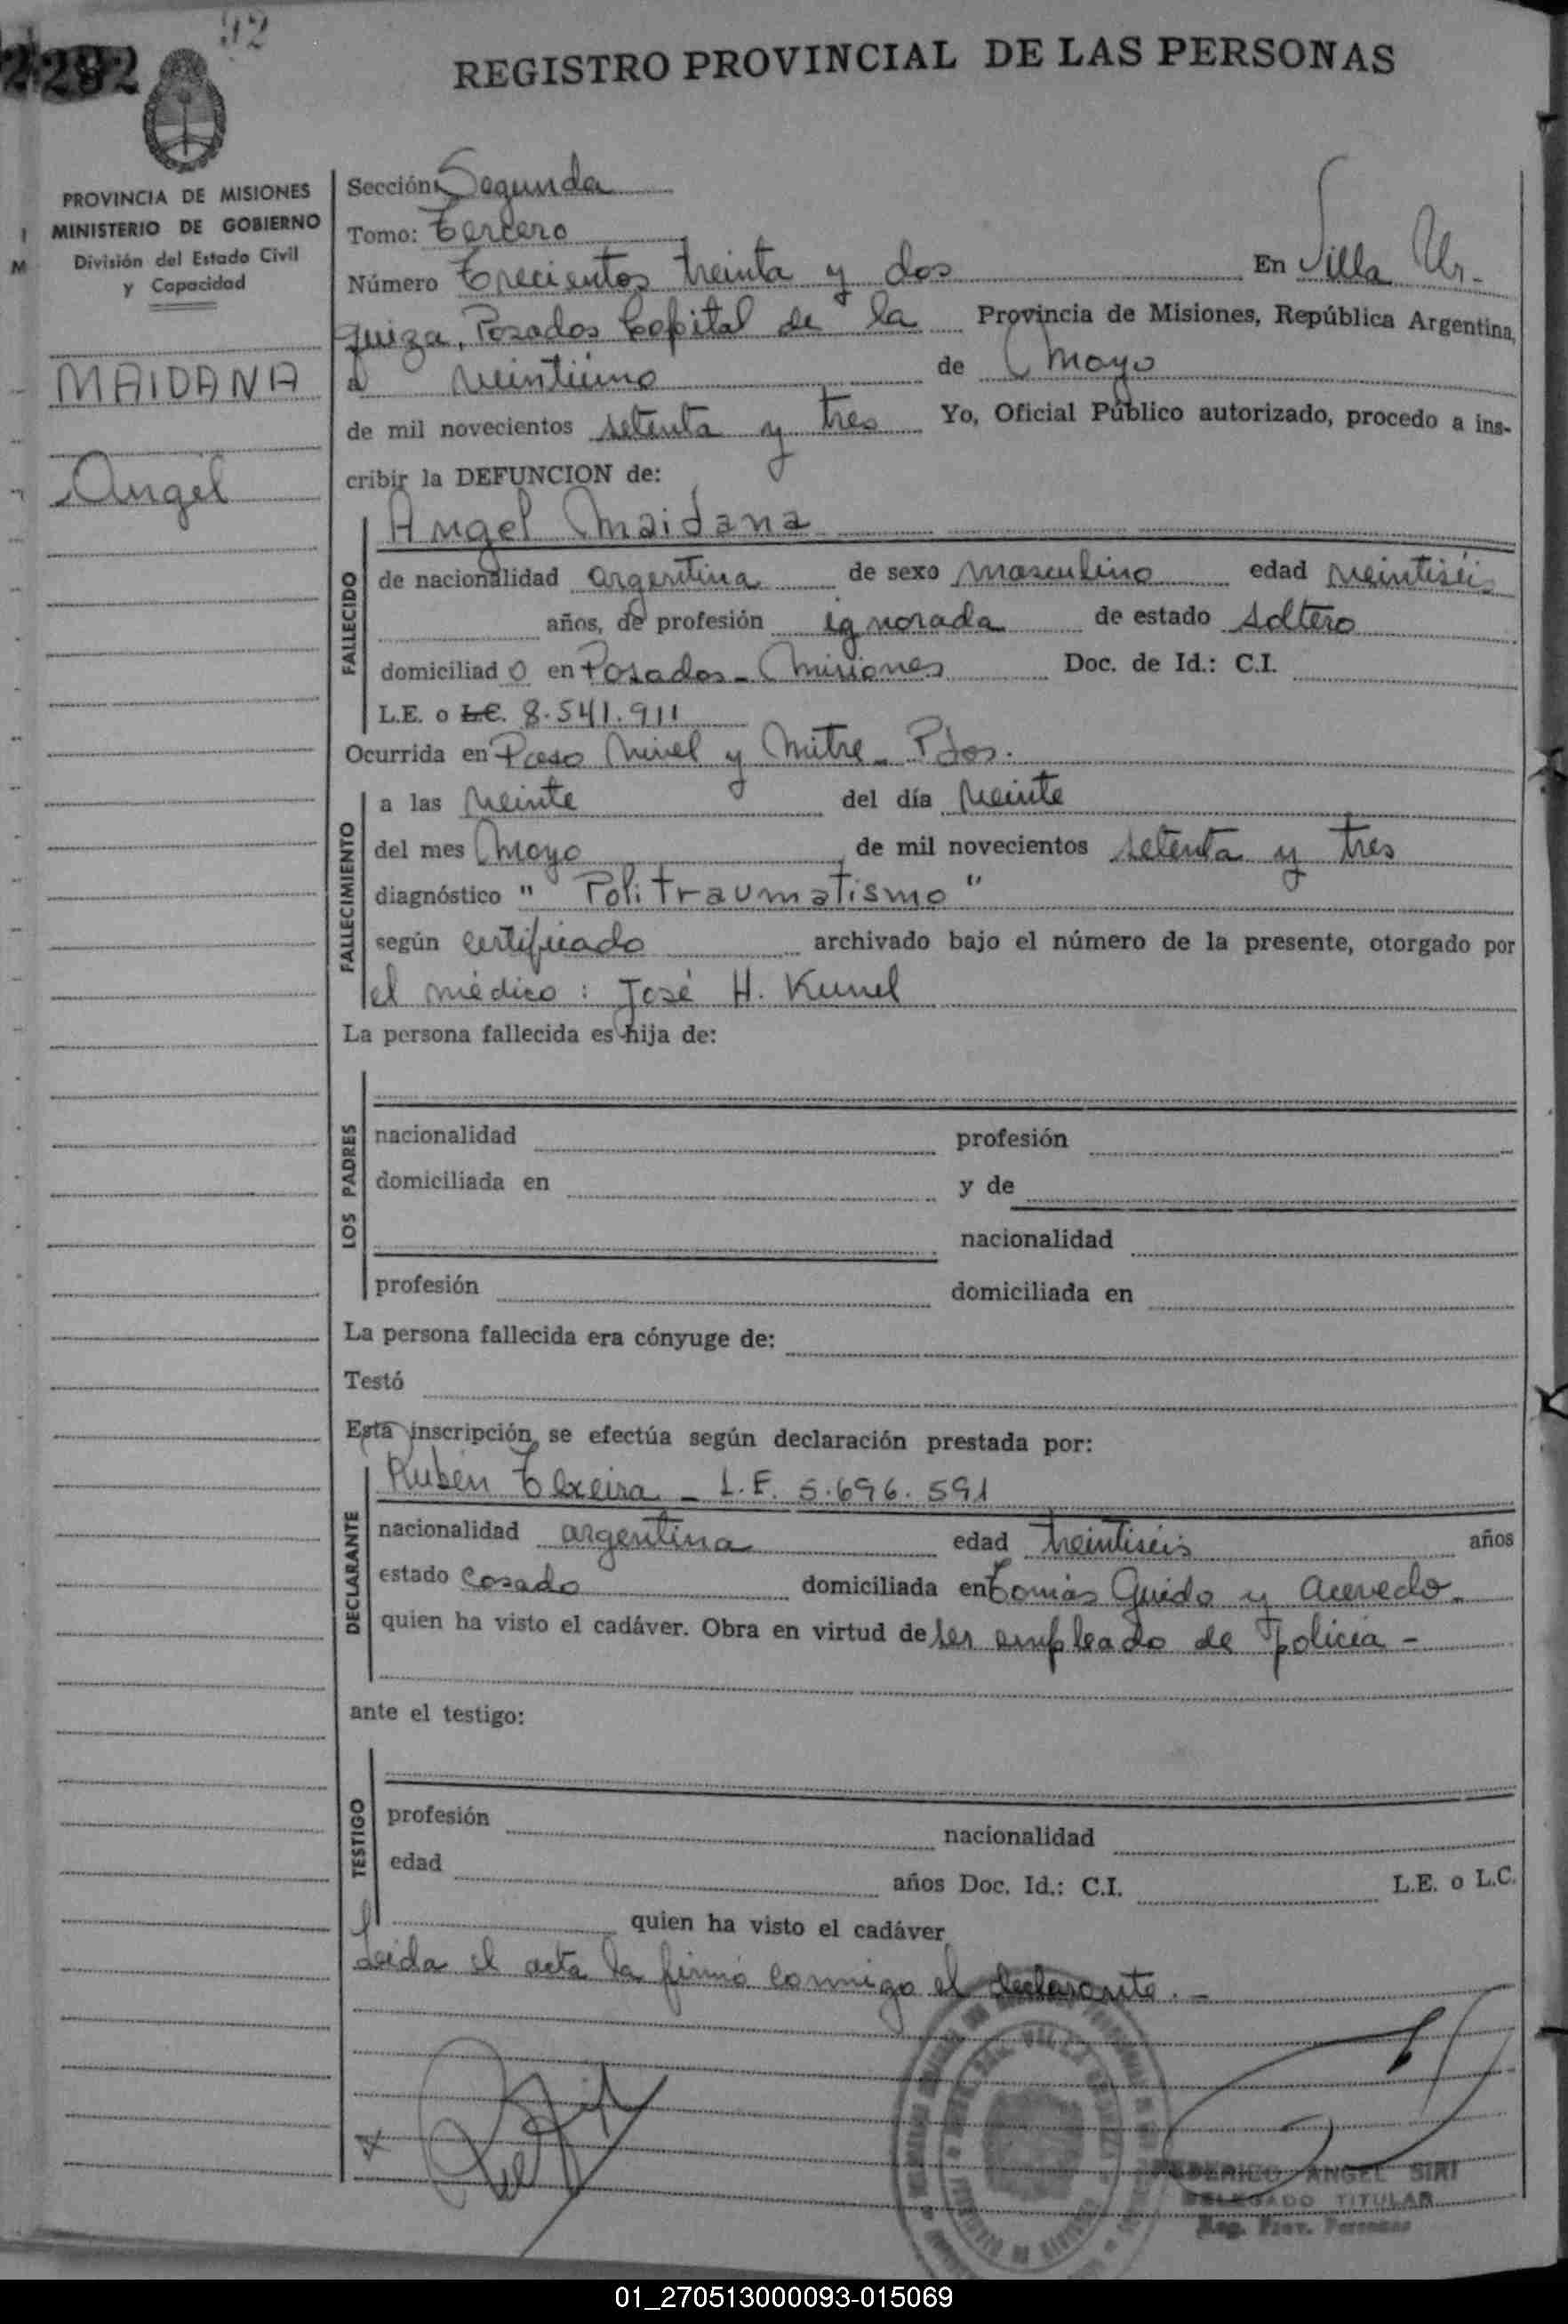 92
2292
REGISTRO PROVINCIAL DE LAS PERSONAS
PROVINCIA DE MISIONES
MINISTERIO DE GOBIERNO
División del Estado Civil
y Capacidad
MAIDANA
Angel
Sección: Segunda
Tomo: Tercero
Número Trecientos treinta y dos En Villa Ur-
quiza, Posadas Capital de la Provincia de Misiones, República Argentina,
a veintiuno de Mayo
de mil novecientos setenta y tres Yo, Oficial Público autorizado, procedo a ins-
cribir la DEFUNCION de:
Angel Maidana
FALLECIDO
de nacionalidad argentina de sexo masculino edad veintiséis
años, de profesión ignorada de estado soltero
domiciliado en Posadas - Misiones Doc. de Id.: C.I.
L.E. o L.C. 8.541.911
Ocurrida en Paso Nivel y Mitre - Pdas.
FALLECIMIENTO
a las veinte del día veinte
del mes Mayo de mil novecientos setenta y tres
diagnóstico " Politraumatismo "
según certificado archivado bajo el número de la presente, otorgado por
el médico: José H. Kunel
La persona fallecida es hija de:
LOS PADRES
nacionalidad profesión
domiciliada en y de
nacionalidad
profesión domiciliada en
La persona fallecida era cónyuge de:
Testó
Esta inscripción se efectúa según declaración prestada por:
Rubén Texeira - L.E. 5.696.591
DECLARANTE
nacionalidad argentina edad treintiséis años
estado casado domiciliada en Tomás Guido y Acevedo.
quien ha visto el cadáver. Obra en virtud de ser empleado de policía -
ante el testigo:
TESTIGO
profesión nacionalidad
edad años Doc. Id.: C.I. L.E. o L.C.
quien ha visto el cadáver
Leida el acta la firmó conmigo el declarante. -
FEDERICO ANGEL SIRI
DELEGADO TITULAR
Reg. Prov. Personas
01_270513000093-015069